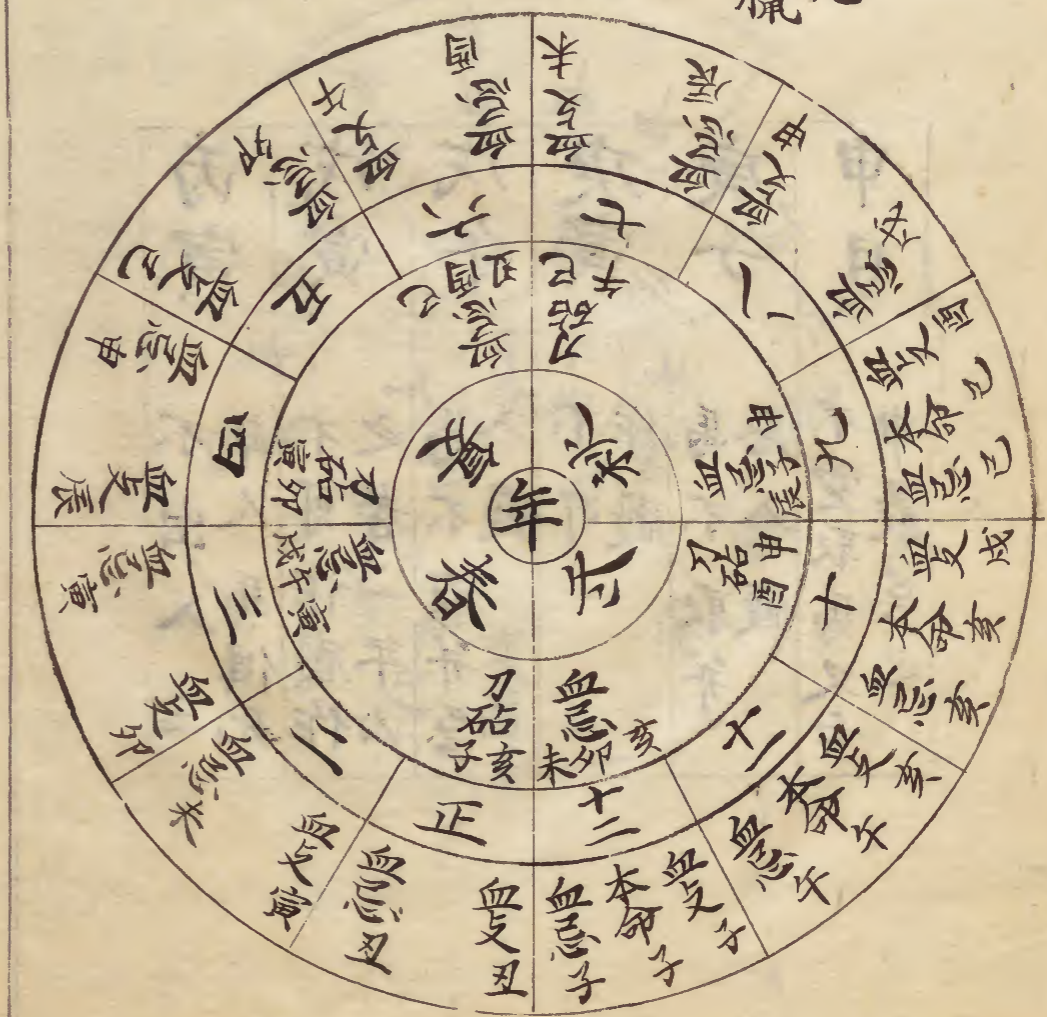 年
春
夏
秋
冬
刀砧 亥子
血忌 寅午戌
刀砧 寅卯
血忌 巳酉丑
刀砧 巳午
血忌 申子辰
刀砧 申酉
血忌 亥卯未
正
二
三
四
五
六
七
八
九
十
十一
十二
血支丑
血忌丑
血支寅
血忌未
血支卯
血忌寅
血支辰
血忌申
血支巳
血忌卯
血支午
血忌酉
血支未
血忌辰
血支申
血忌戌
血支酉
本命巳
血忌巳
血支戌
本命亥
血忌亥
血支亥
本命午
血忌午
血支子
本命子
血忌子